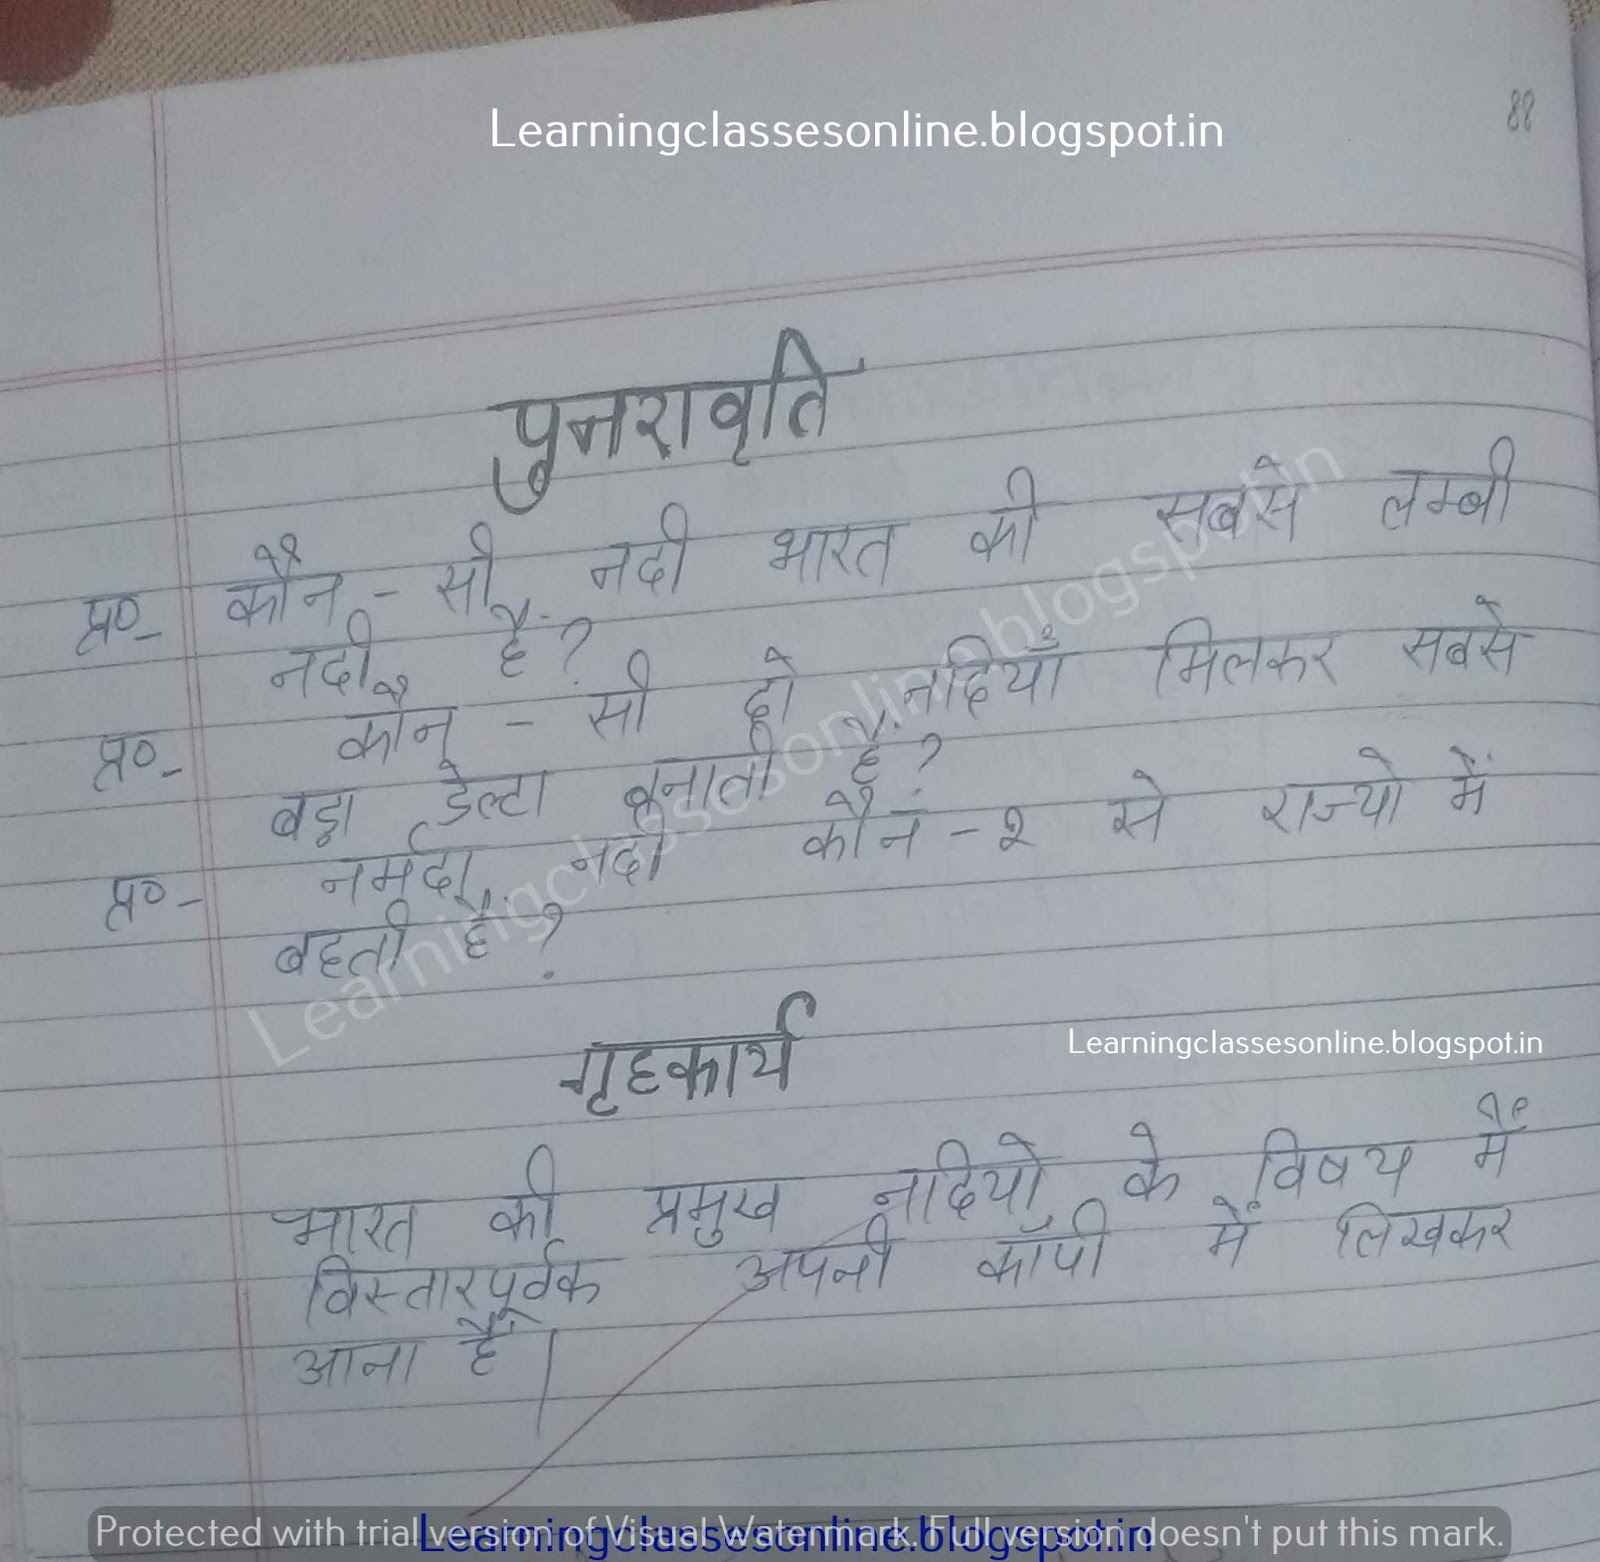 Learningclassesonline.blogspot.in
88
पुनरावृति
प्र०- कौन - सी नदी भारत की सबसे लम्बी
नदी है?
प्र०- कौन - सी दो नदियाँ मिलकर सबसे
बड़ा डेल्टा बनाती है?
प्र०- नर्मदा नदी कौन - २ से राज्यो में
बहती है?
Learningclassesonline.blogspot.in
गृहकार्य
Learningclassesonline.blogspot.in
भारत की प्रमुख नदियो के विषय में
विस्तारपूर्वक अपनी कॉपी में लिखकर
आना है।
Protected with trial version of Visual Watermark. Full version doesn't put this mark.
Learningclassesonline.blogspot.in